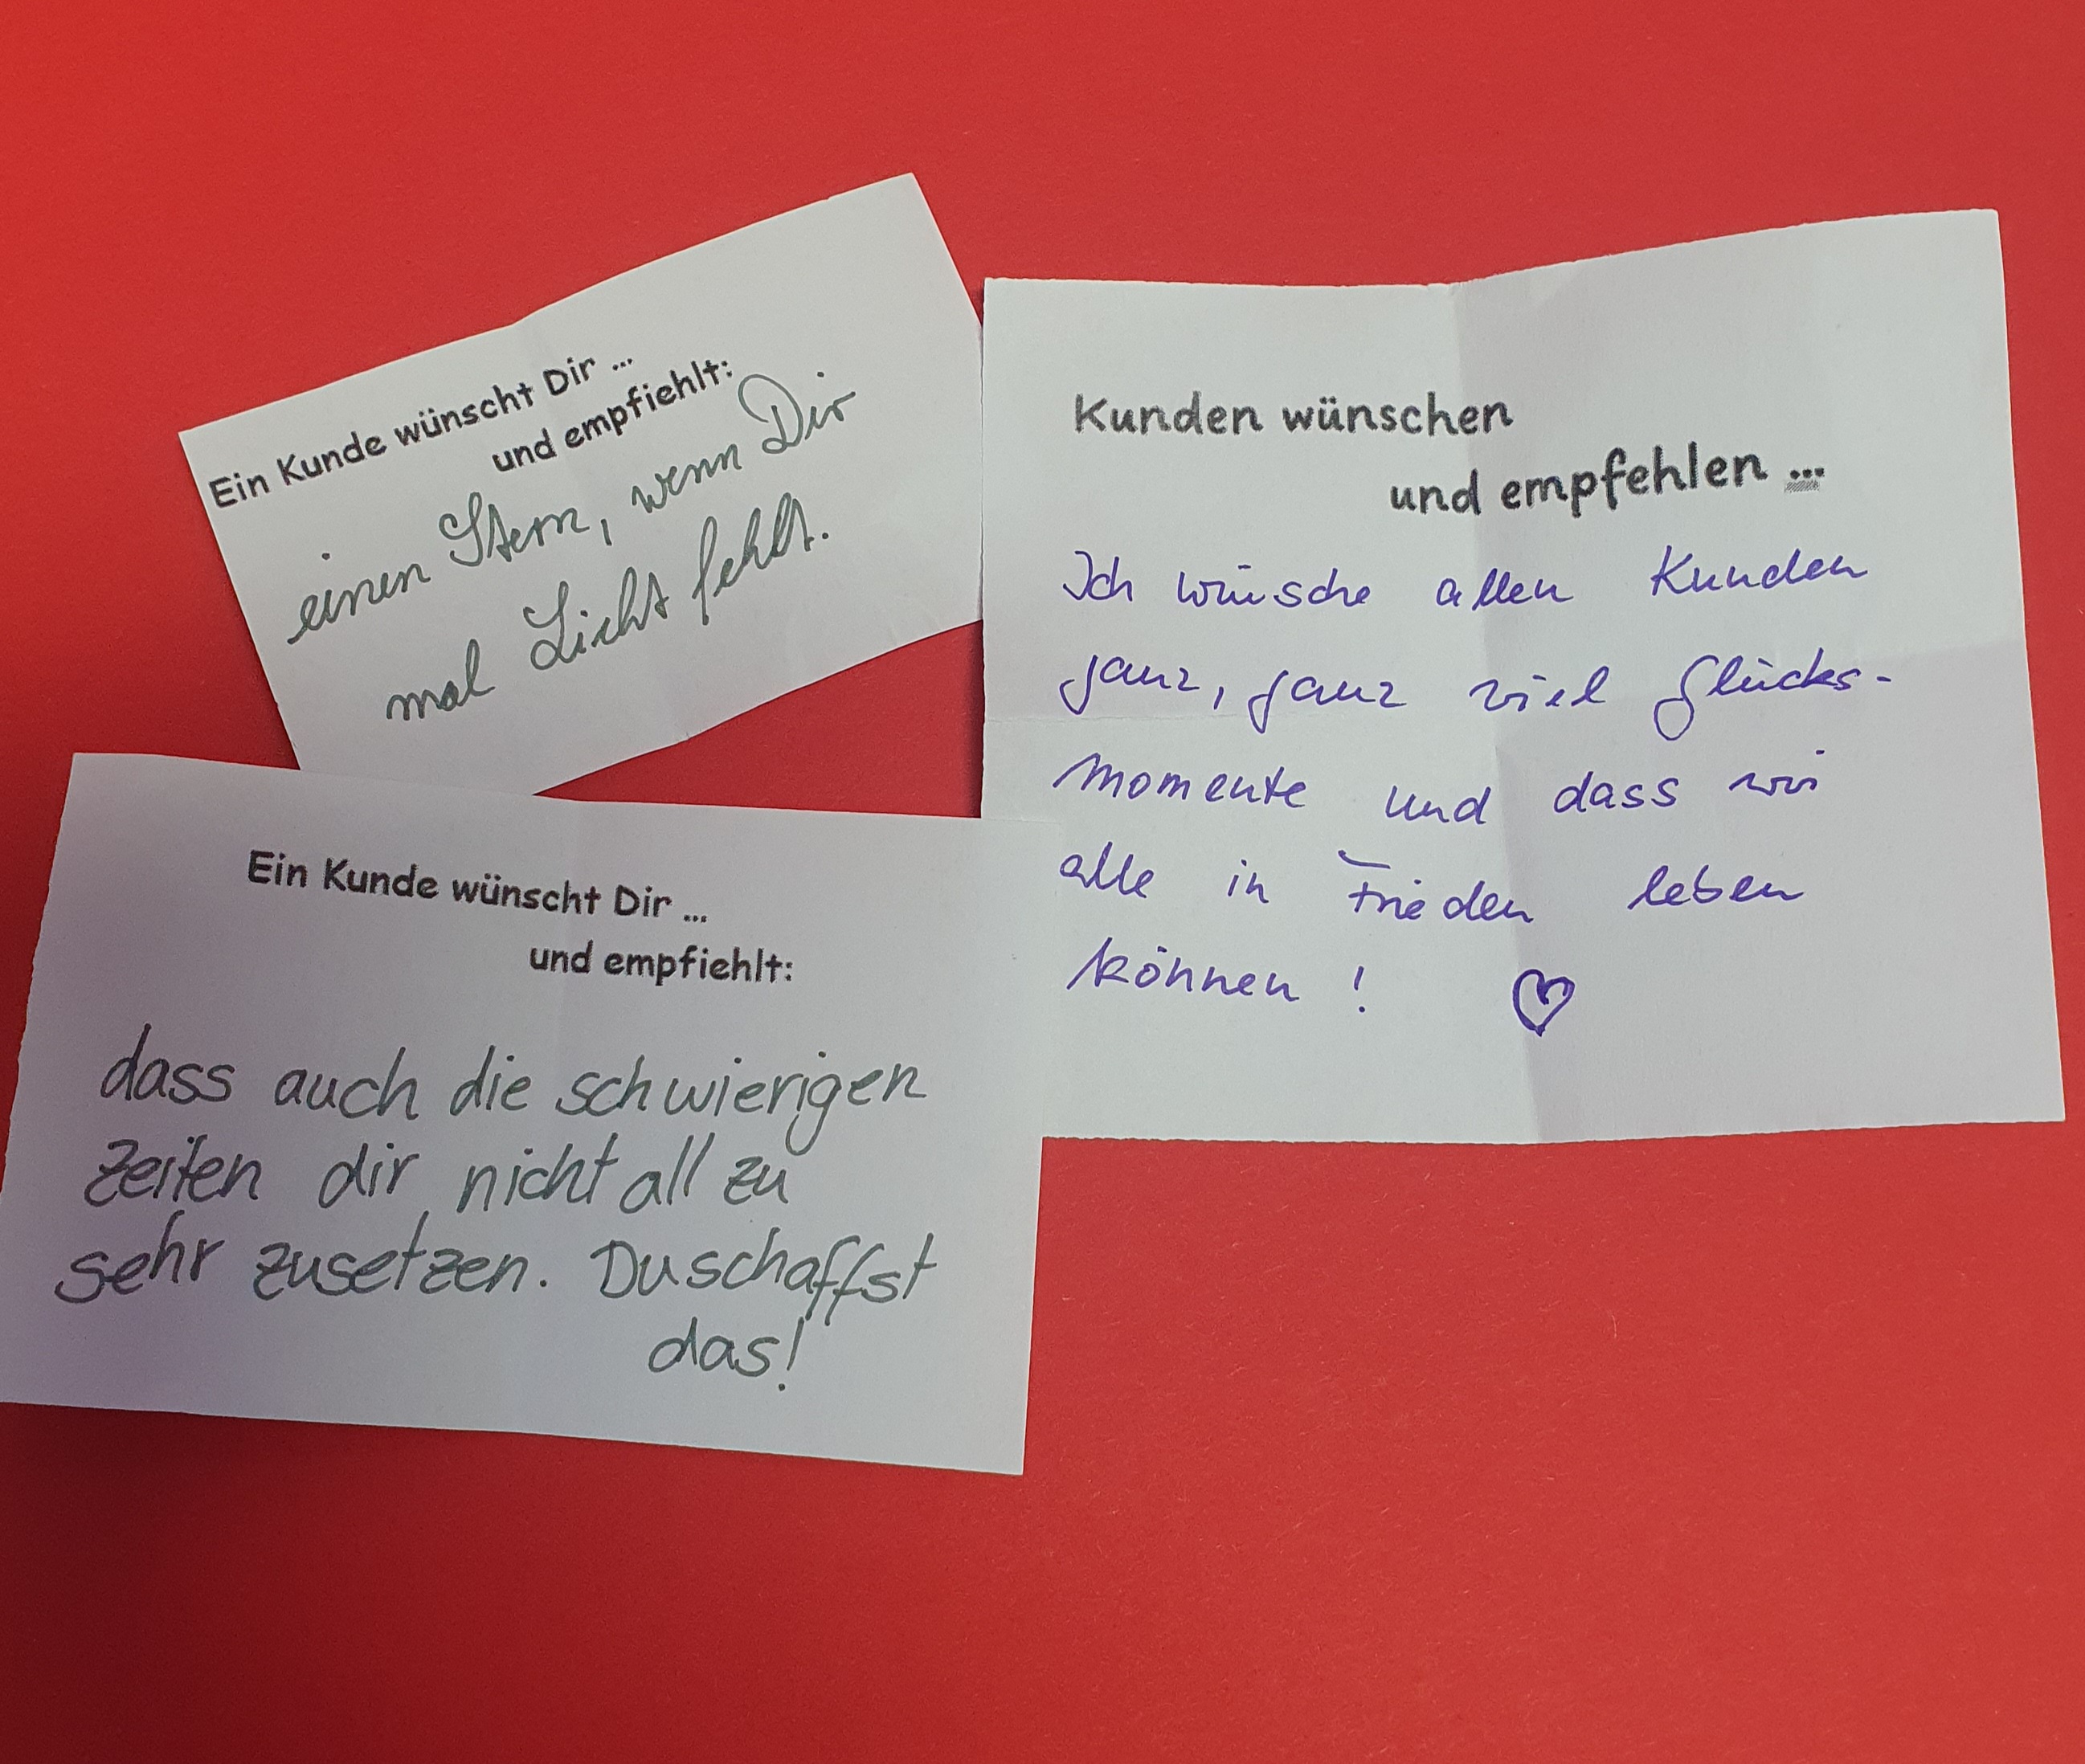 Ein Kunde wünscht Dir ...
und empfiehlt:
einen Stern, wenn Dir
mal Licht fehlt.
Kunden wünschen
und empfehlen ...
Ich wünsche allen Kunden
ganz, ganz viel Glücks-
momente und dass wir
alle in Frieden leben
können !
Ein Kunde wünscht Dir ...
und empfiehlt:
dass auch die schwierigen
Zeiten dir nicht all zu
sehr zusetzen. Du schaffst
das!